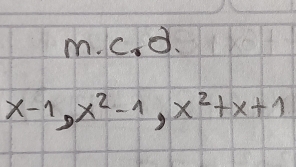 m.c.d.
x-1, x²-1, x²+x+1